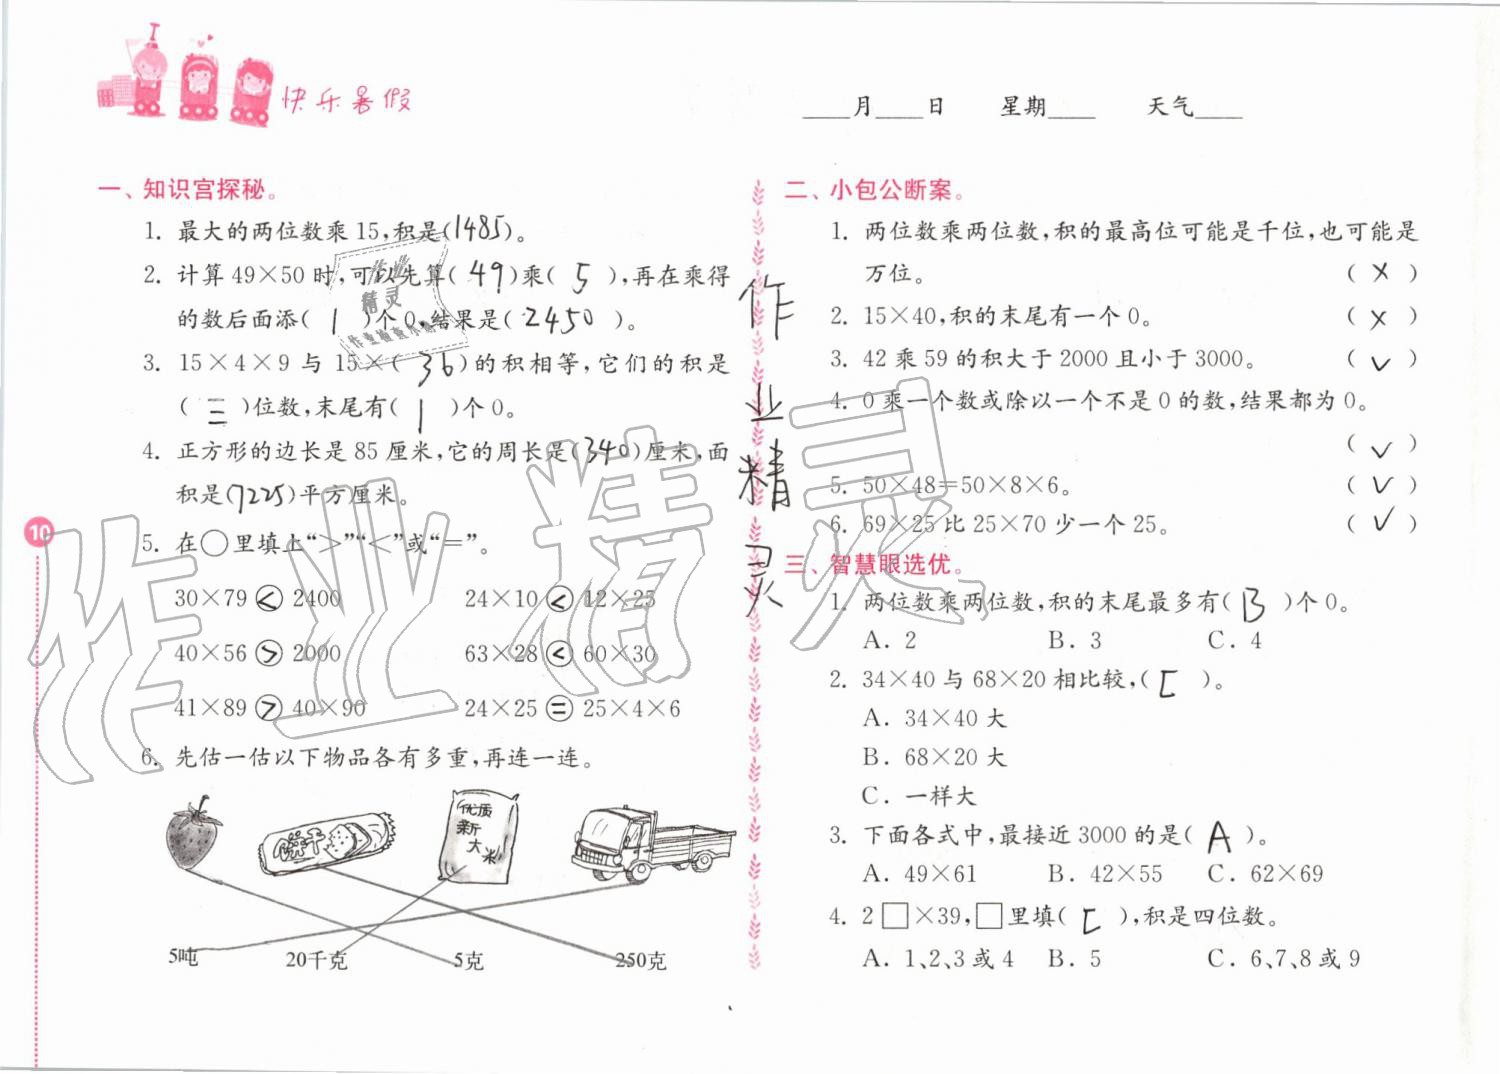 快乐暑假
____月____日 星期____ 天气____
一、知识宫探秘。
1. 最大的两位数乘15,积是(1485)。
2. 计算49×50时,可以先算(49)乘(5),再在乘得
的数后面添(1)个0,结果是(2450)。
3. 15×4×9与15×(36)的积相等,它们的积是
(三)位数,末尾有(1)个0。
4. 正方形的边长是85厘米,它的周长是(340)厘米,面
积是(7225)平方厘米。
5. 在○里填上“>”“<”或“=”。
30×79 < 2400 24×10 < 12×25
40×56 > 2000 63×28 < 60×30
41×89 > 40×90 24×25 = 25×4×6
6. 先估一估以下物品各有多重,再连一连。
饼干
优质
新
大
米
5吨 20千克 5克 250克
10
二、小包公断案。
1. 两位数乘两位数,积的最高位可能是千位,也可能是
万位。 (×)
2. 15×40,积的末尾有一个0。 (×)
3. 42乘59的积大于2000且小于3000。 (✓)
4. 0乘一个数或除以一个不是0的数,结果都为0。
(✓)
5. 50×48=50×8×6。 (✓)
6. 69×25比25×70少一个25。 (✓)
三、智慧眼选优。
1. 两位数乘两位数,积的末尾最多有(B)个0。
A. 2 B. 3 C. 4
2. 34×40与68×20相比较,(C)。
A. 34×40大
B. 68×20大
C. 一样大
3. 下面各式中,最接近3000的是(A)。
A. 49×61 B. 42×55 C. 62×69
4. 2□×39,□里填(C),积是四位数。
A. 1、2、3或4 B. 5 C. 6、7、8或9
作业精灵
作业精灵
作业
精灵